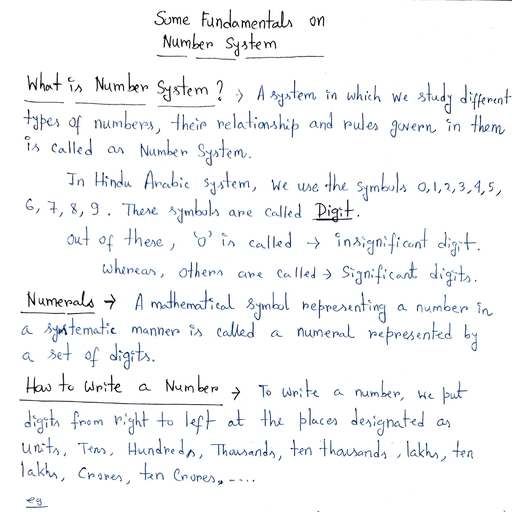 Some Fundamentals on
Number System
What is Number System? → A system in which we study different
types of numbers, their relationship and rules govern in them
is called as Number System.
In Hindu Arabic system, we use the symbols 0,1,2,3,4,5,
6, 7, 8, 9. These symbols are called Digit.
out of these, '0' is called → insignificant digit.
whereas, others are called → Significant digits.
Numerals → A mathematical symbol representing a number in
a systematic manner is called a numeral represented by
a set of digits.
How to Write a Number → To write a number, we put
digits from right to left at the places designated as
units, Tens, Hundreds, Thousands, ten thousands, lakhs, ten
lakhs, Crores, ten Crores, -....
eg